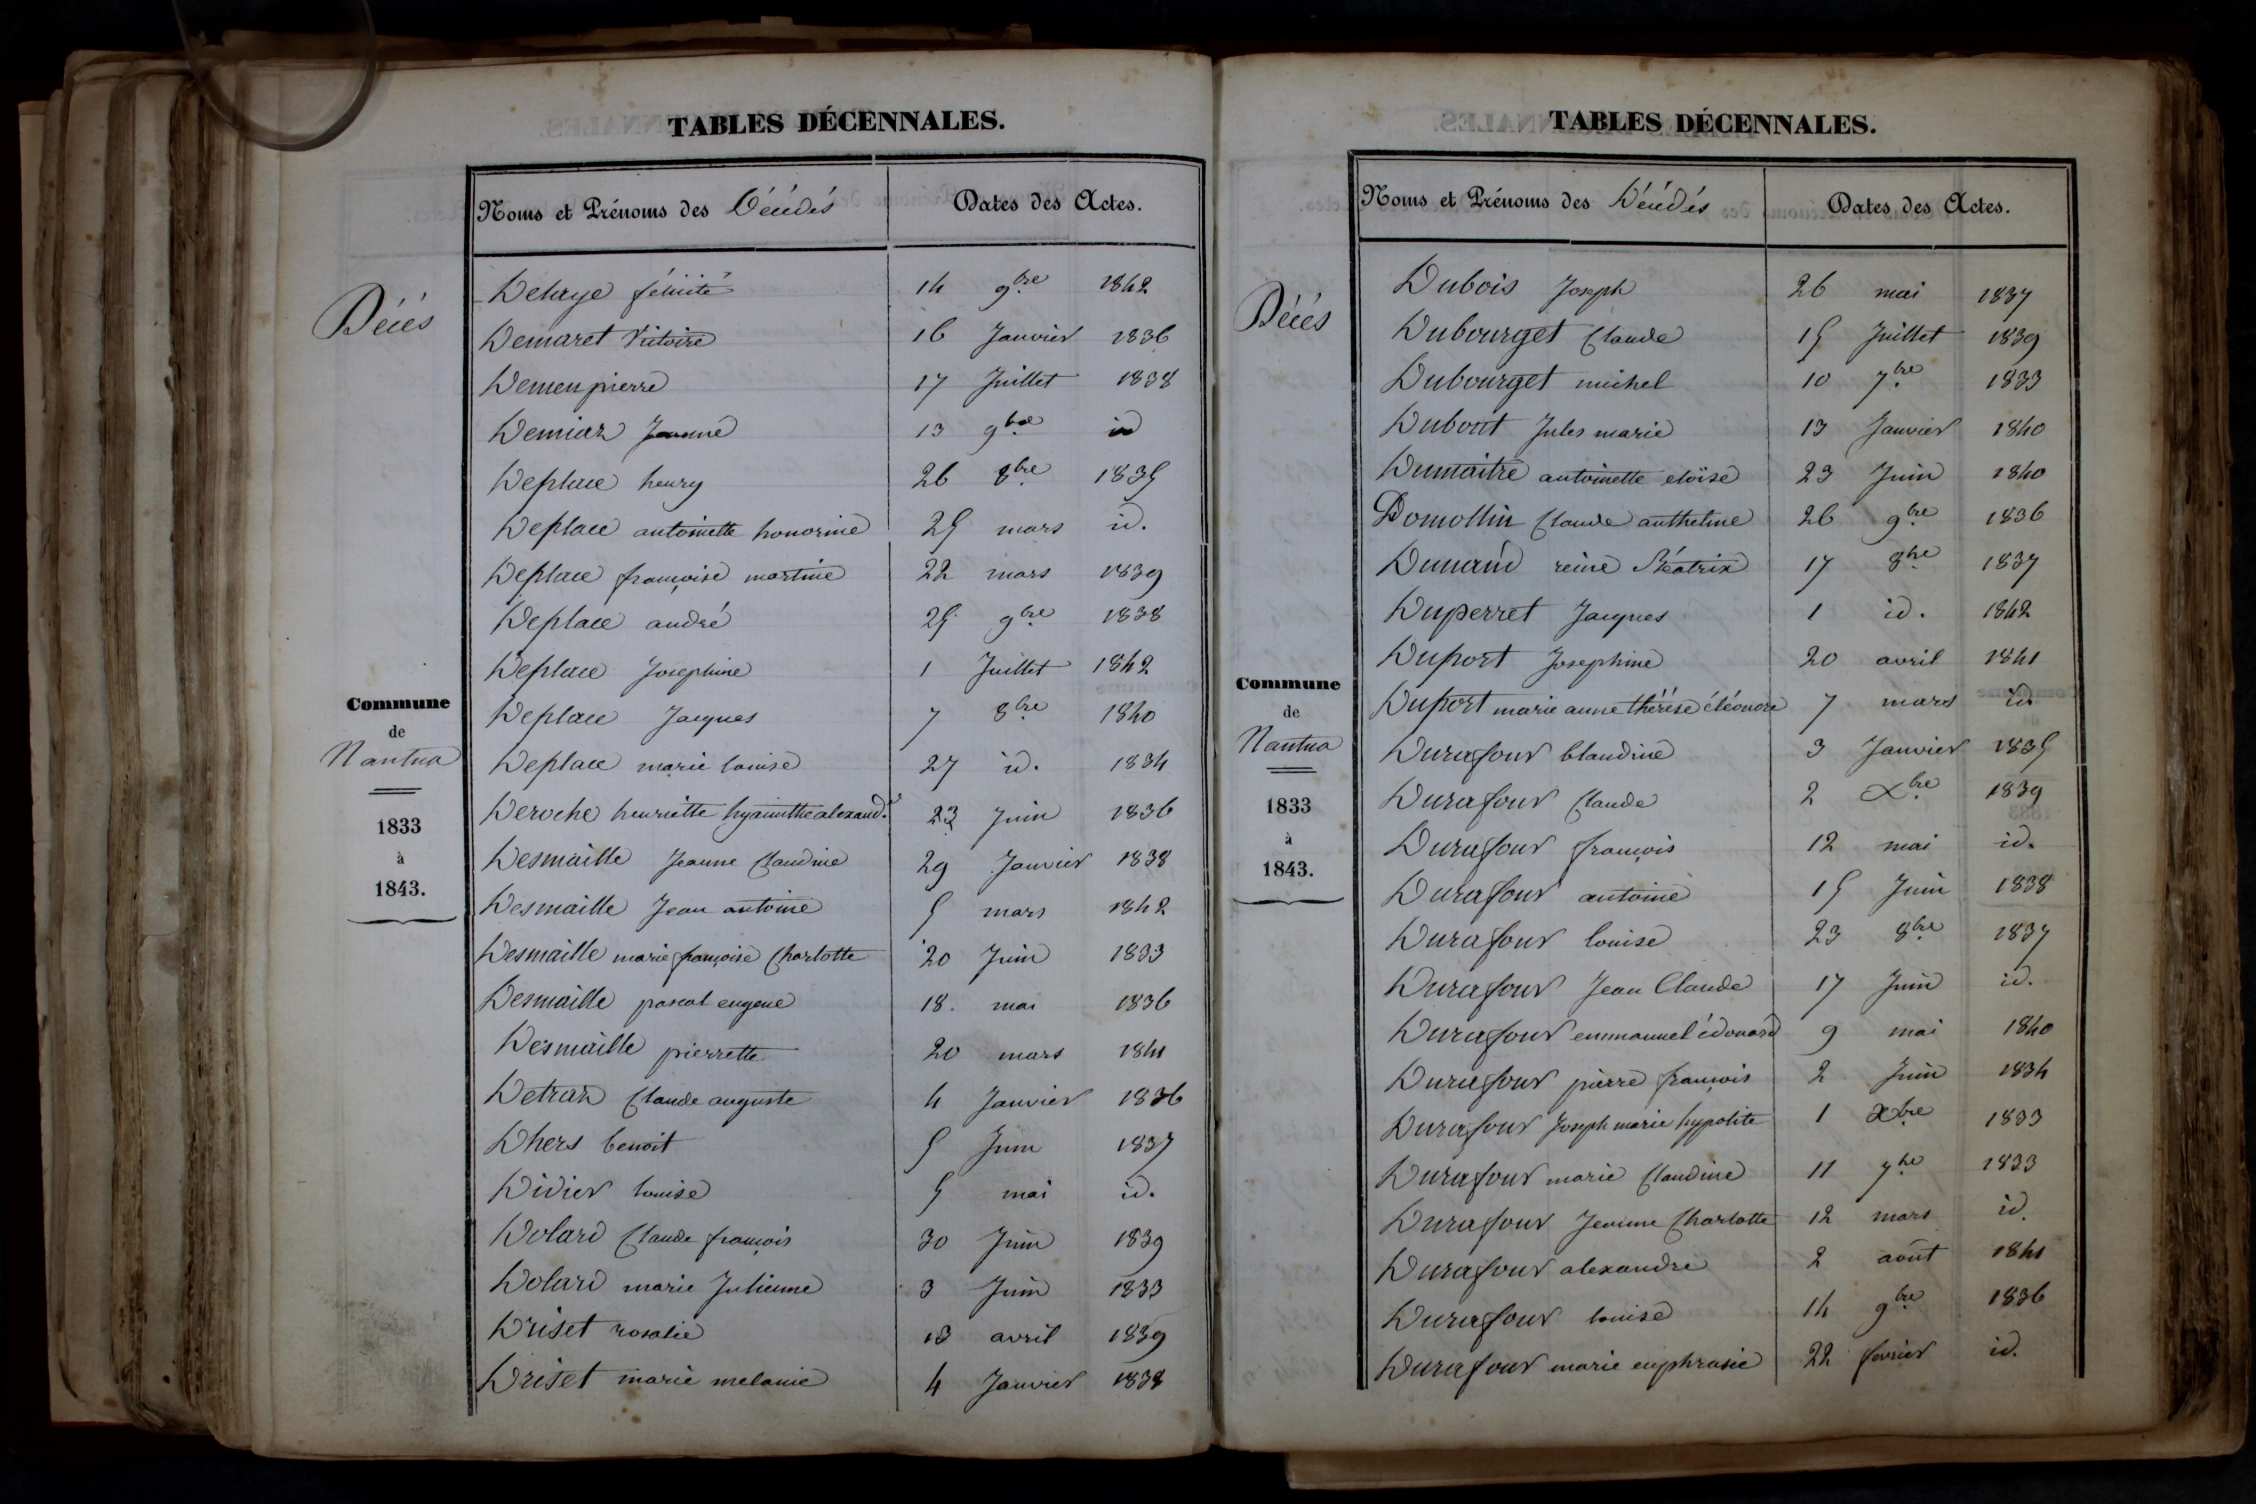 TABLES DÉCENNALES.
Noms et Prénoms des Décédés Dates des Actes.
Décés
Commune
de
Nantua
1833
à
1843.
Delaye félicité 14 9bre 1842
Demaret Victoire 16 Janvier 1836
Demeu pierre 17 Juillet 1838
Demiaz Jeanne 13 9bre id
Deplace henry 26 8bre 1835
Deplace antoinette honorine 25 mars id.
Deplace françoise martine 22 mars 1839
Deplace andré 25 9bre 1838
Deplace Josephine 1 Juillet 1842
Deplace Jacques 7 8bre 1840
Deplace marie louise 27 id. 1834
Deroche henriette hyacinthe alexand.e 23 Juin 1836
Desmaille Jeanne Claudine 29 Janvier 1838
Desmaille Jean antoine 5 mars 1842
Desmaille marie françoise Charlotte 20 Juin 1833
Desmaille pascal eugene 18. mai 1836
Desmaille pierrette 20 mars 1841
Detraz Claude auguste 4 Janvier 1836
Dhers benoit 5 Juin 1837
Didier louise 5 mai id.
Dolard Claude françois 30 Juin 1839
Dolard marie Julienne 3 Juin 1833
Driset rosalie 13 avril 1839
Driset marie melanie 4 Janvier 1838
TABLES DÉCENNALES.
Noms et Prénoms des Décédés Dates des Actes.
Décés
Commune
de
Nantua
1833
à
1843.
Dubois Joseph 26 mai 1837
Dubourget Claude 15 Juillet 1839
Dubourget michel 10 7bre 1833
Dubout Jules marie 13 Janvier 1840
Dumaitre antoinette eloïse 23 Juin 1840
Domollin Claude anthelme 26 9bre 1836
Dunand reine Béatrix 17 8bre 1837
Duperret Jacques 1 id. 1842
Duport Josephine 20 avril 1841
Duport marie anne thérése éléonore 7 mars id
Durafour Claudine 3 Janvier 1835
Durafour Claude 2 Xbre 1839
Durafour françois 12 mai id.
Durafour antoine 15 Juin 1838
Durafour louise 23 8bre 1837
Durafour Jean Claude 17 Juin id.
Durafour emmanuel édouard 9 mai 1840
Durafour pierre françois 2 Juin 1834
Durafour Joseph marie hypolite 1 Xbre 1833
Durafour marie Claudine 11 7bre 1833
Durafour Jeanne Charlotte 12 mars id.
Durafour alexandre 2 août 1841
Durafour louise 14 9bre 1836
Durafour marie euphrasie 22 fevrier id.